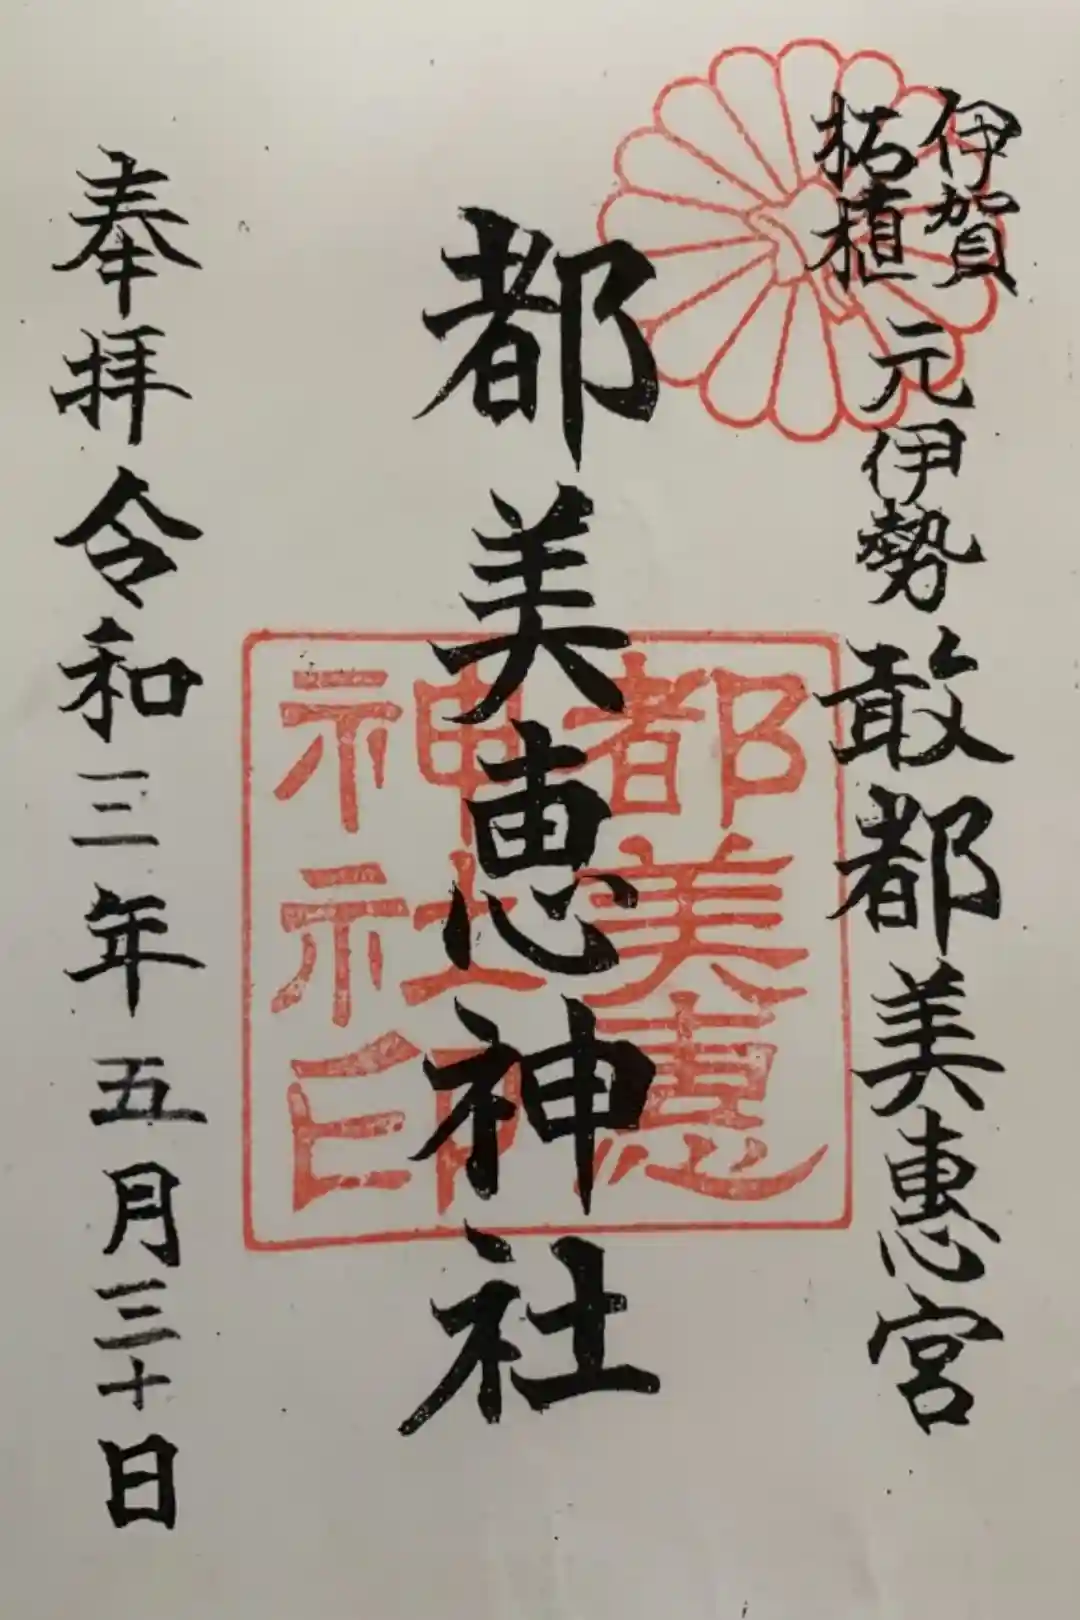 伊賀
柘植
元伊勢敢都美恵宮
都美恵神社
都美恵
神社印
奉拝令和三年五月三十日